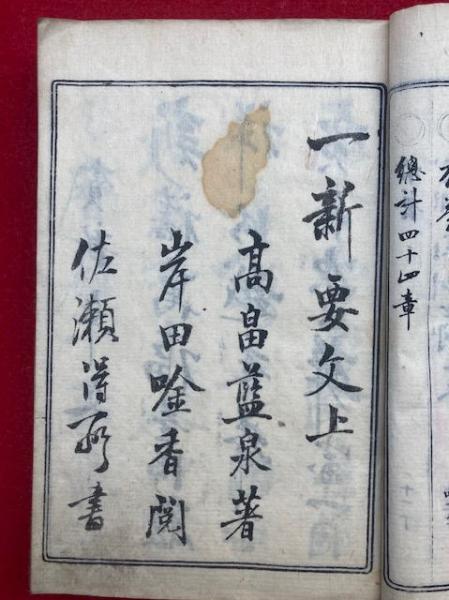 總計四十四章
一新要文上
高畠藍泉著
岸田唫香閲
佐瀬得所書